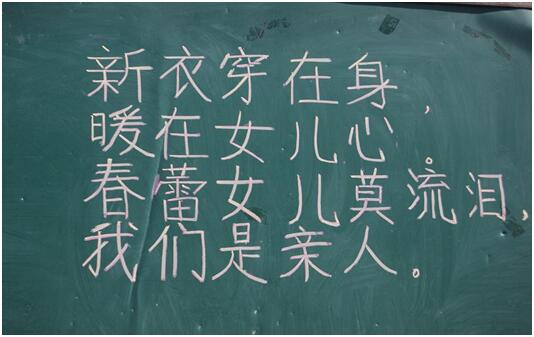 新衣穿在身，
暖在女儿心。
春蕾女儿莫流泪，
我们是亲人。